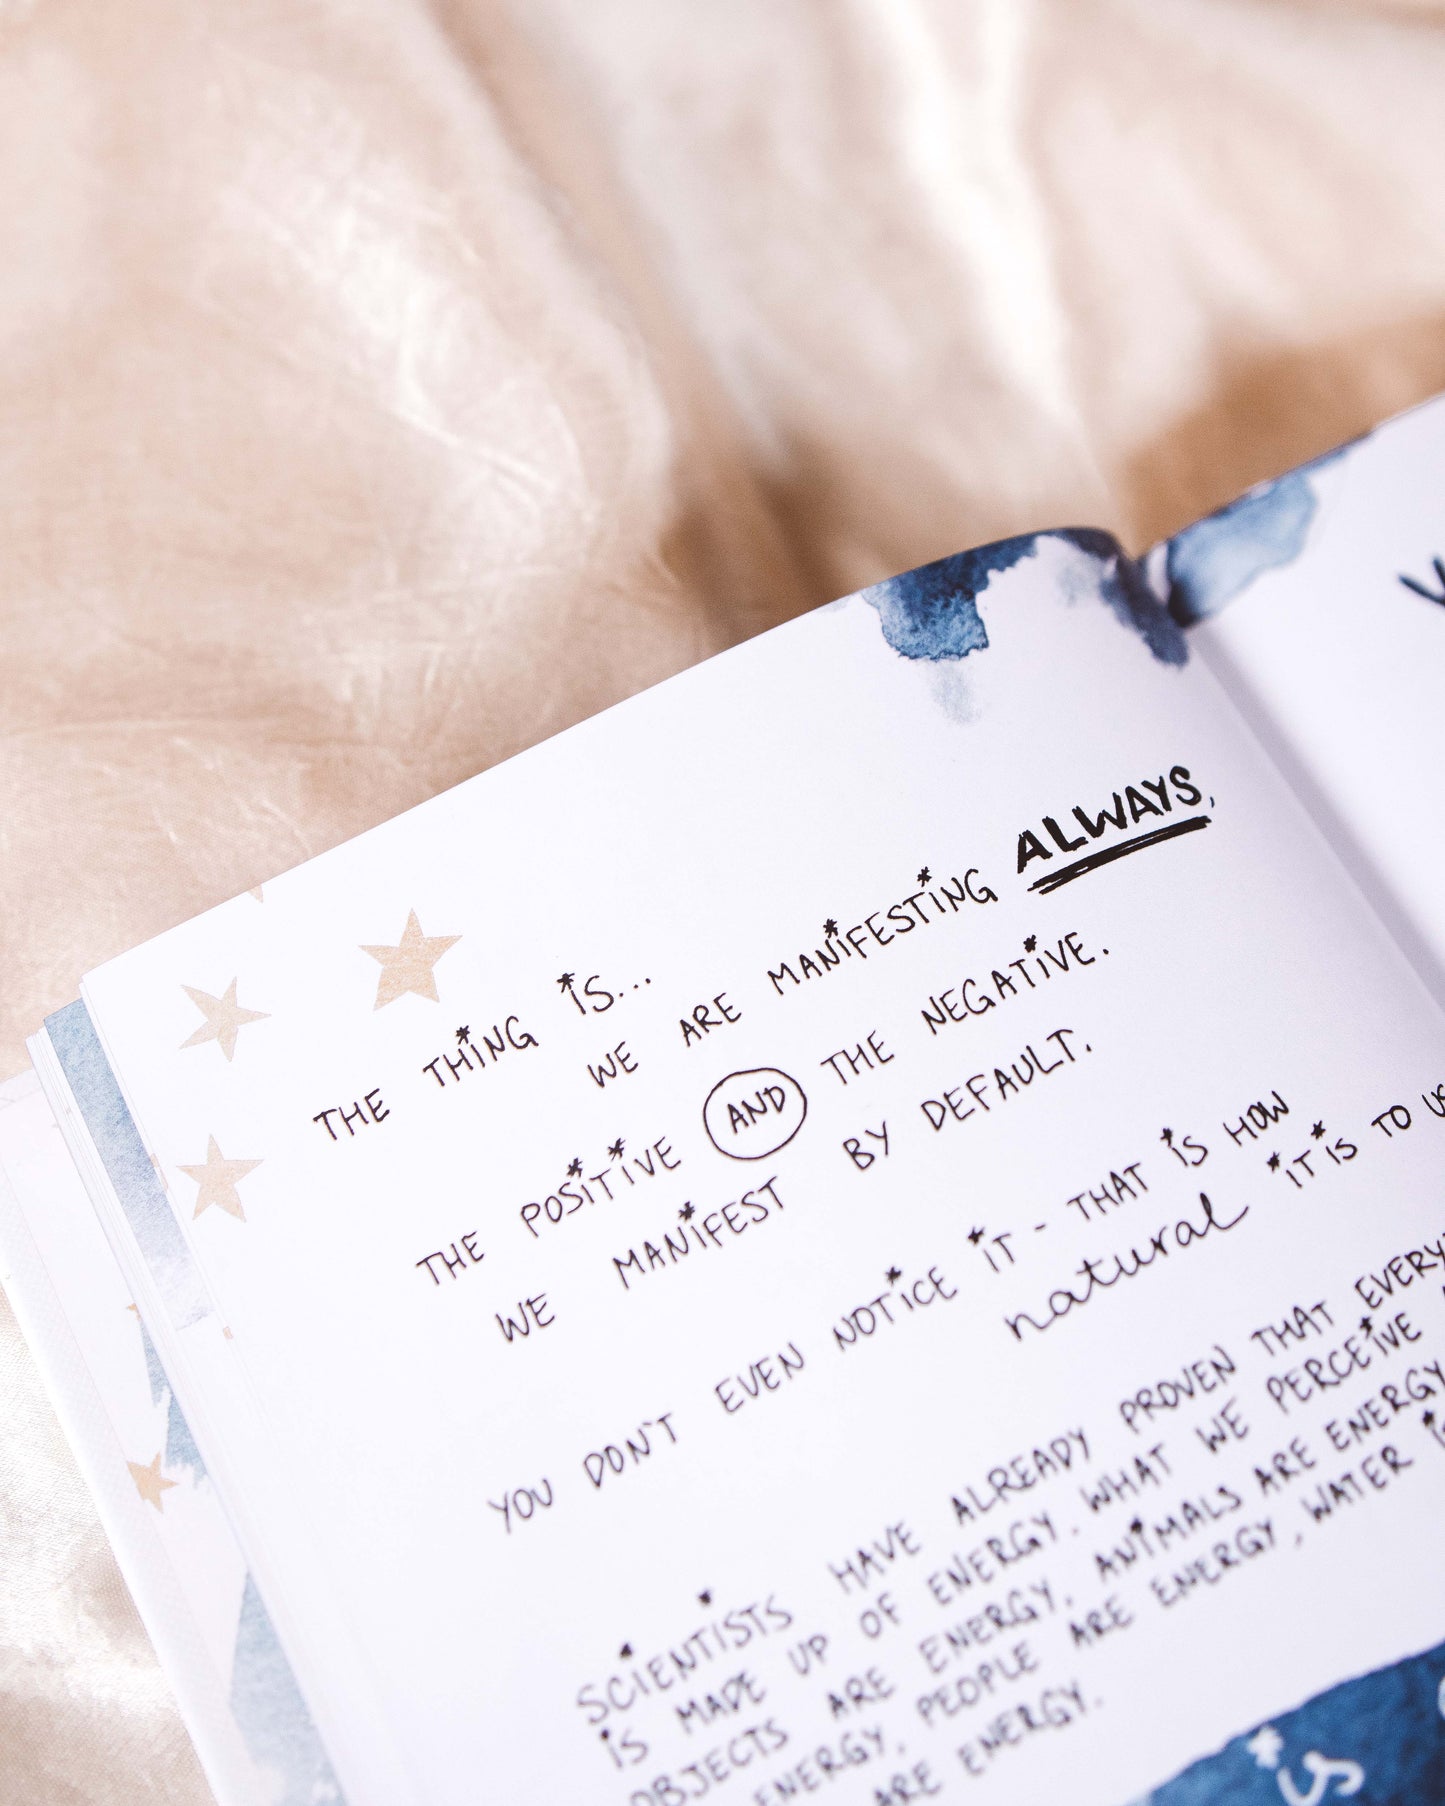 THE THING IS...
WE ARE MANIFESTING ALWAYS,
THE POSITIVE AND THE NEGATIVE.
WE MANIFEST BY DEFAULT.
YOU DON'T EVEN NOTICE IT - THAT IS HOW
natural IT IS TO US
SCIENTISTS HAVE ALREADY PROVEN THAT EVERY
IS MADE UP OF ENERGY. WHAT WE PERCEIVE
OBJECTS ARE ENERGY, ANIMALS ARE ENERGY
ENERGY, PEOPLE ARE ENERGY, WATER
ARE ENERGY.
is